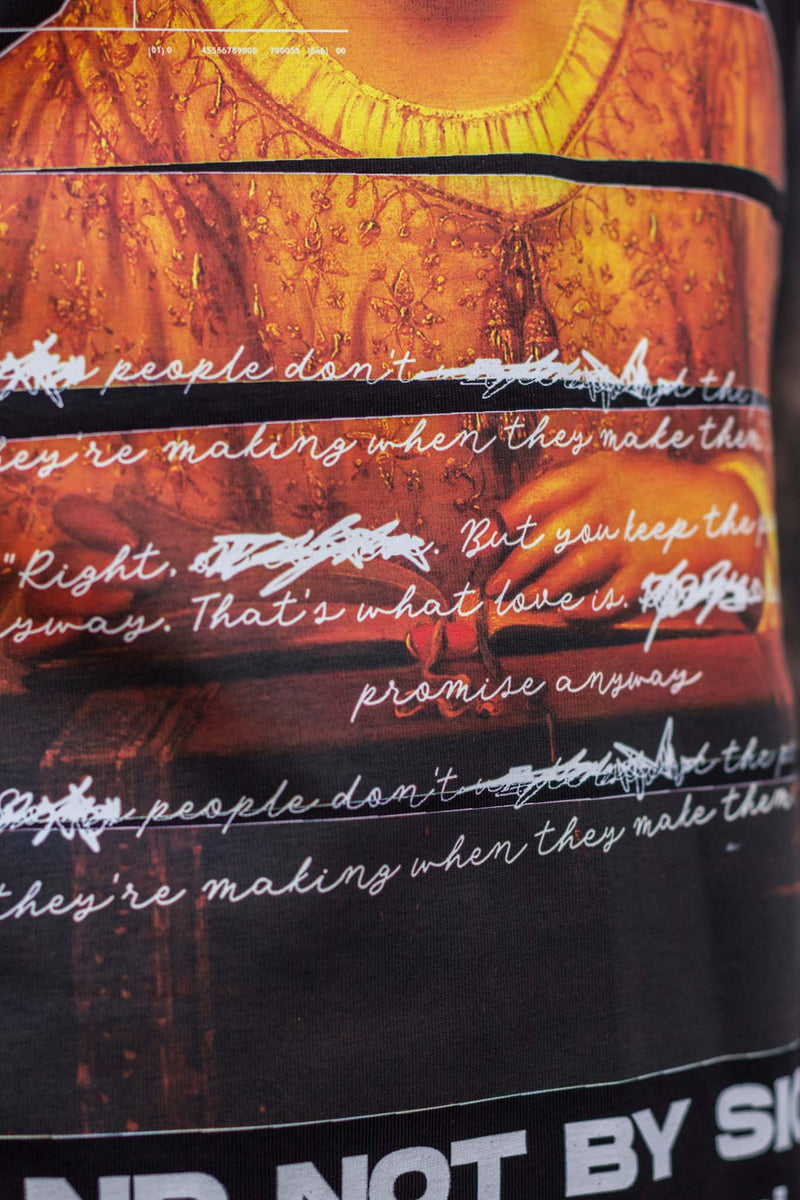 (01) 0 45556789000 700056 (666) 00
people don't the
hey're making when they make them
"Right. But you keep the
yway. That's what love is.
promise anyway
people don't the
they're making when they make them
ND NOT BY SIG